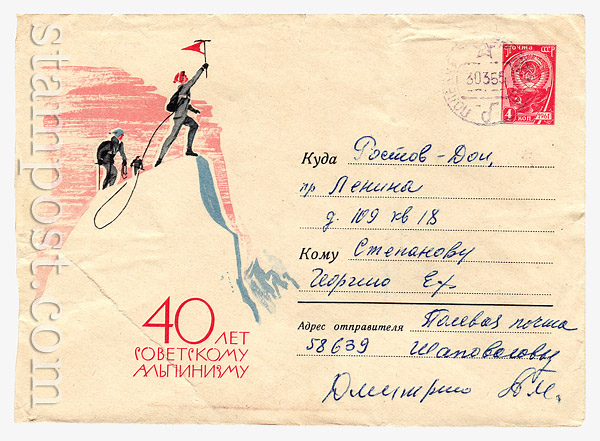 ПОЧТА СССР
4 КОП
1961
30365
Куда Ростов-Дон,
пр Ленина
д. 109 кв 18
Кому Степанову
Георгию Ех.
Адрес отправителя Полевая почта
58639 Шаповалову
Дмитрию
40 ЛЕТ
СОВЕТСКОМУ
АЛЬПИНИЗМУ
stampost.com
stampost.com